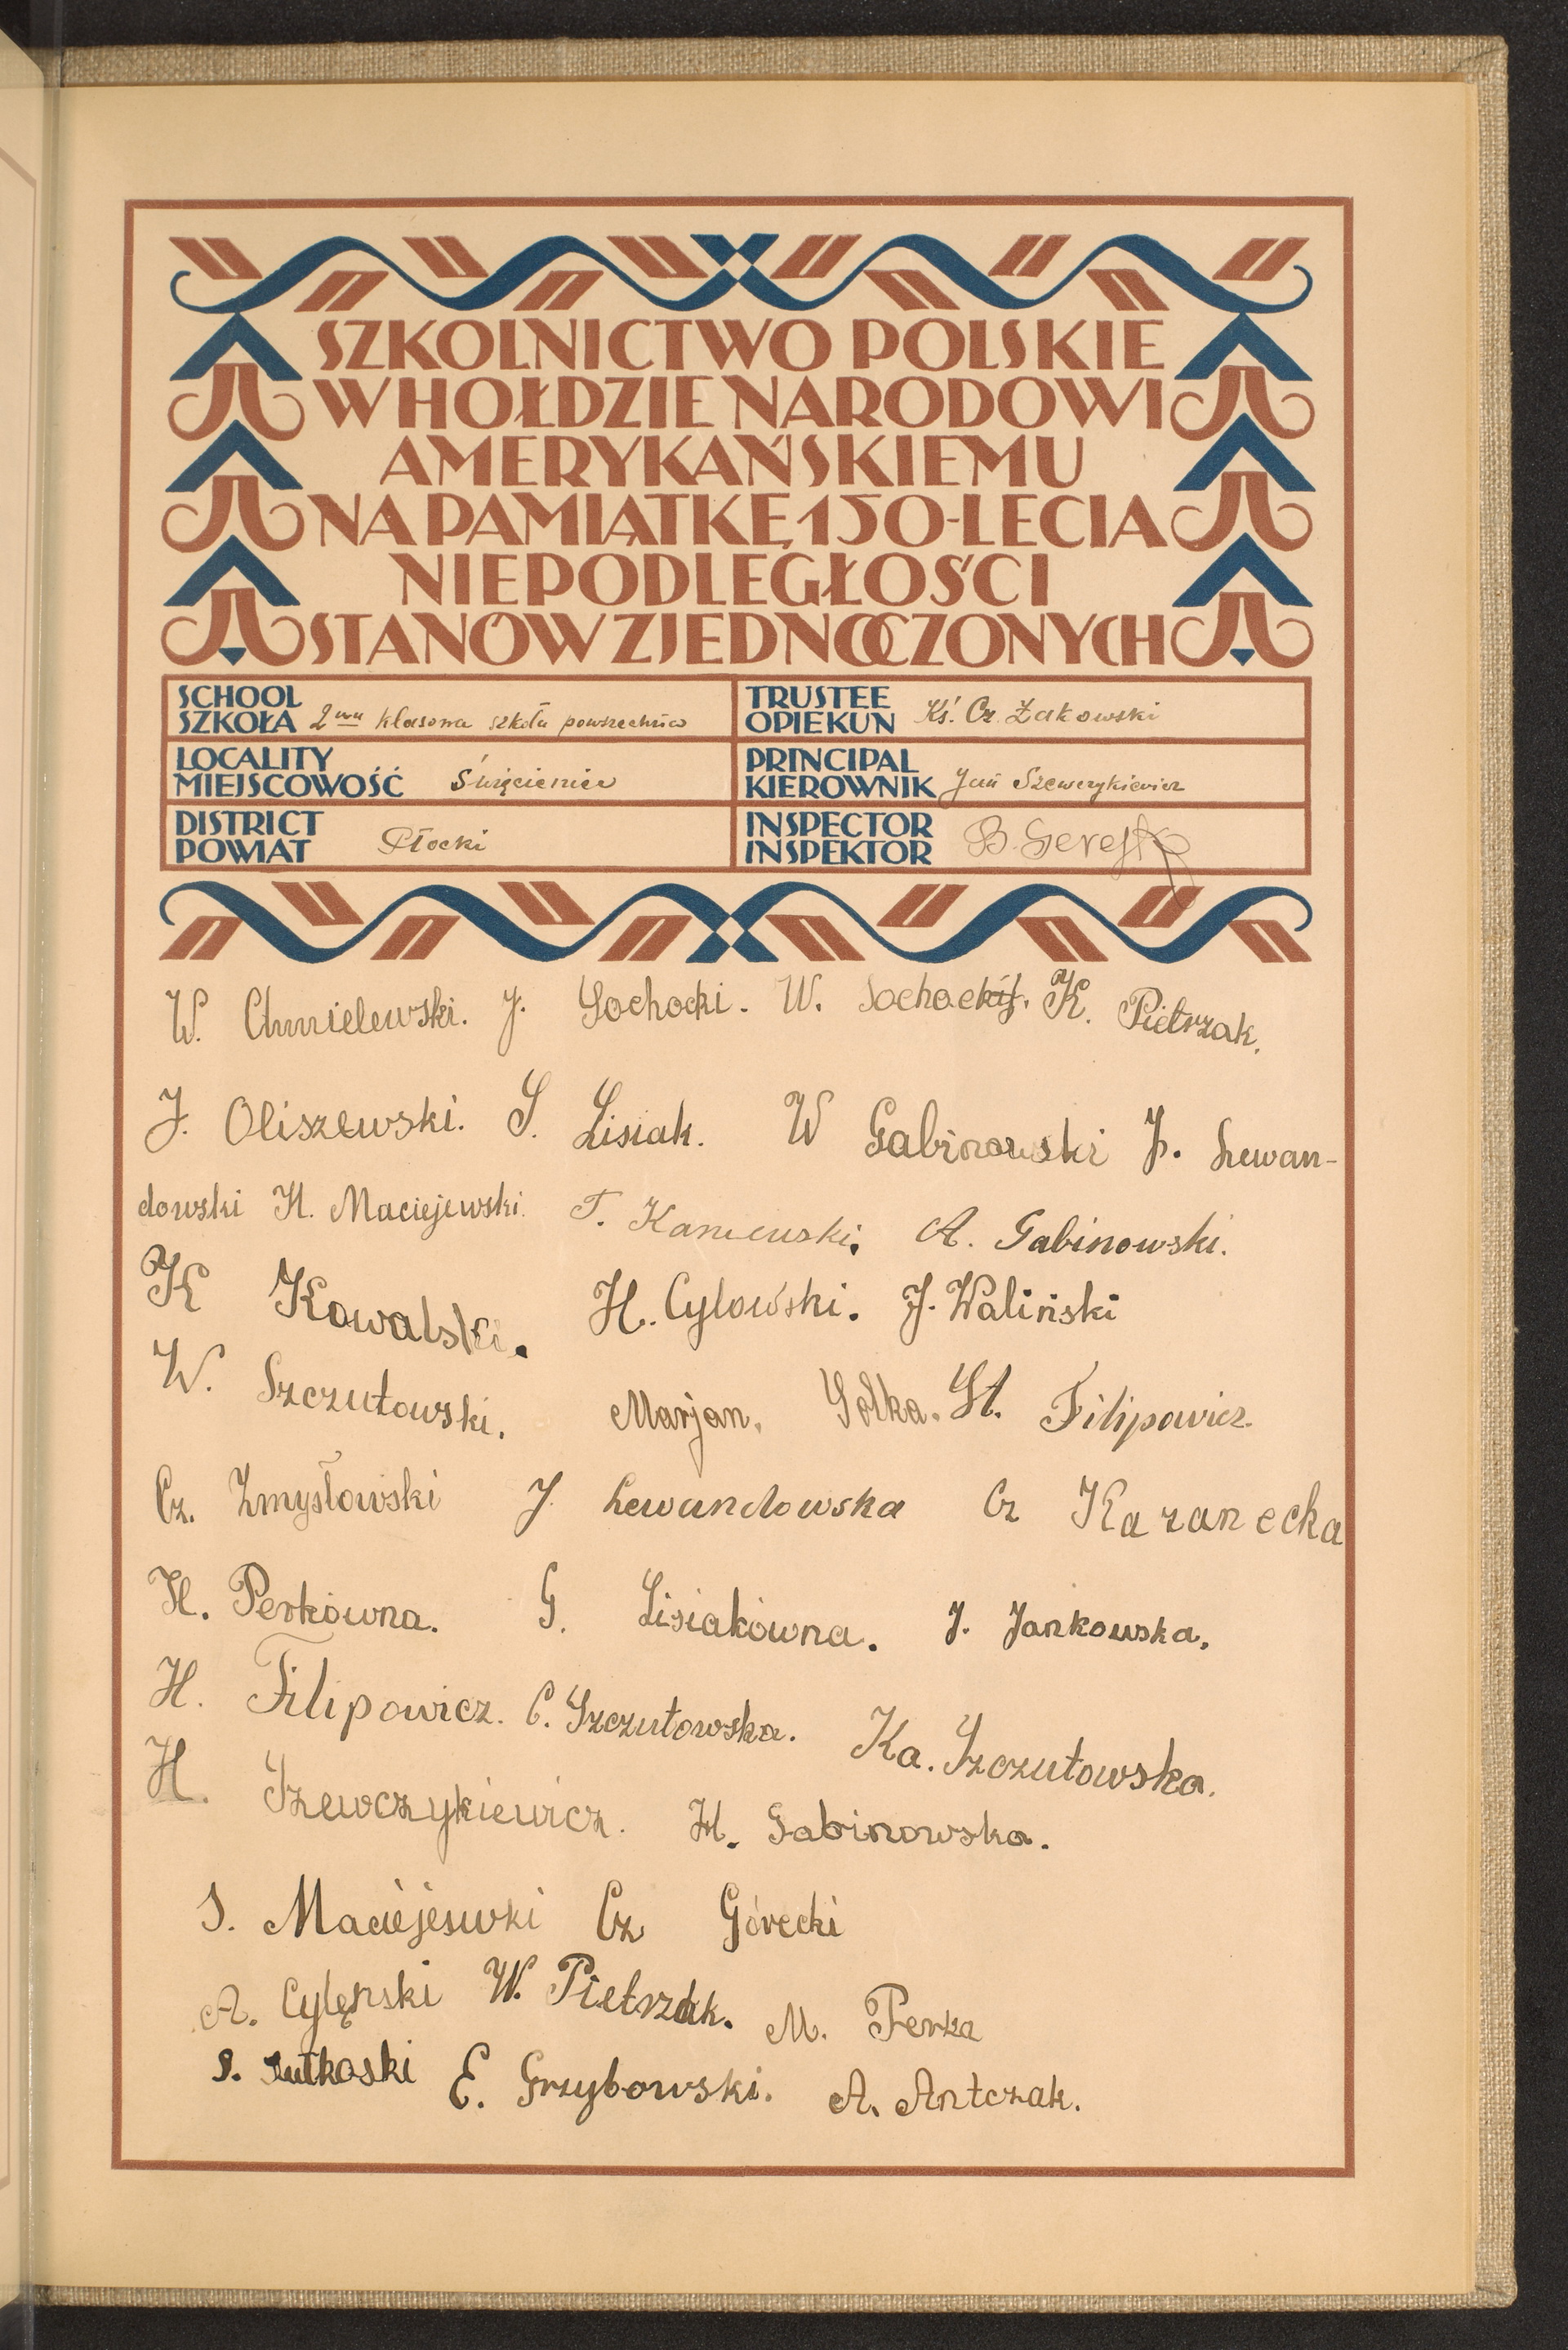 SZKOLNICTWO POLSKIE
W HOŁDZIE NARODOWI
AMERYKAŃSKIEMU
NA PAMIĄTKĘ 150-LECIA
NIEPODLEGŁOŚCI
STANÓW ZJEDNOCZONYCH
SCHOOL
SZKOŁA 2wu klasowa szkoła powszechna
TRUSTEE
OPIEKUN Ks. Cz. Żakowski
LOCALITY
MIEJSCOWOŚĆ Święcienice
PRINCIPAL
KIEROWNIK Jan Szewczykiewicz
DISTRICT
POWIAT Płocki
INSPECTOR
INSPEKTOR B. 
W. Chmielewski. J. Sochocki. W. K. Pietrzak.
J. Oliszewski. S. Lisiak. W Gabinowski J. Lewan-
dowski H. Maciejewski. T. Kaniewski. A. Gabinowski.
K Kowalski. H. Cylowski. J. Waliński
W. Szczutowski. Marjan. Sołka. St. Filipowicz.
Cz. Zmysłowski J. Lewandowska Cz Kazanecka
H. Perkówna. G. Lisiakówna. J. Jankowska.
H. Filipowicz. C. Szczutowska. Ka. Szczutowska.
H. Szewczykiewicz. H. Gabinowska.
S. Maciejeswki Cz Górecki
A. Cylęnski W. Pietrzak. M. Perka
S. Rutkoski E. Grzybowski. A. Antczak.